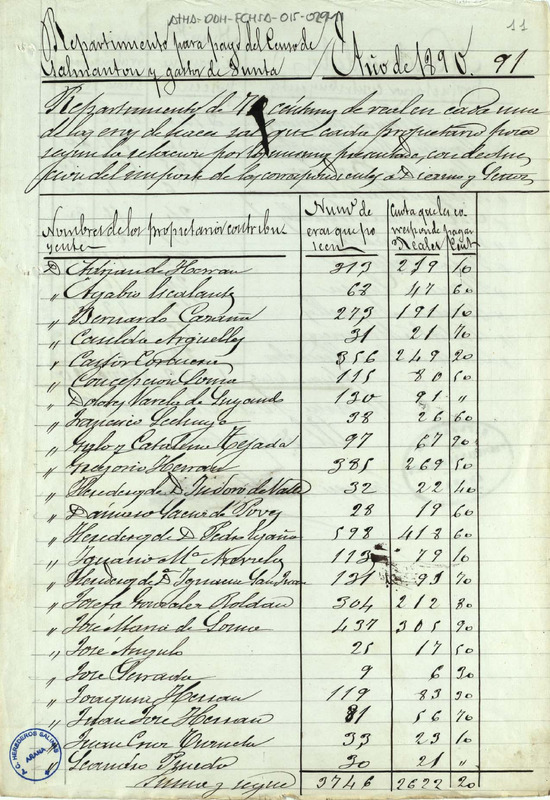 ATHA-DDH-FCHSA-015-029-11
11
Repartimiento para pago del Censo de
Salmanton y gastos de Junta Año de 1890. 91
Repartimiento de 70 centimos de real en cada una
de las eras de hacer sal que cada propietario posee
segun la relacion por los mismos presentada, con deduc
cion del importe de las correspondientes a Diezmo y
Nombres de los propietarios contribu
yentes
Num.º de
eras que po
seen
Cuota que les co
rresponde pagar
Reales Cent
D Adrian de Herran 313 219 10
" Agabio Escalante 68 47 60
" Bernardo 273 191 10
" Casilda Arguelles 31 21 70
" Castor Corcuera 356 249 20
" Concepcion Loma 115 80 50
" Varela de 130 91 "
" 38 26 60
" y Catalina Tejada 97 67 90
" Gregorio Herran 385 269 50
" Herederos de D. Isidoro de Valle 32 22 40
" Damaso Saenz de 28 19 60
" Herederos de D. Pedro 598 418 60
" Ignacio M.ª 113 79 10
" Herederos de D. Ignacio San Juan 131 91 70
" Josefa Gonzalez Roldan 304 212 80
" José Maria de Loma 437 305 90
" José Angulo 25 17 50
" José Serrada 9 6 30
" Joaquina Herran 119 83 30
" Juan Jose Herran 81 56 70
" Juan Cruz 33 23 10
" Leandro Pinedo 30 21 "
Suma y sigue 3746 2622 20
A.C. HEREDEROS SALINAS
AÑANA